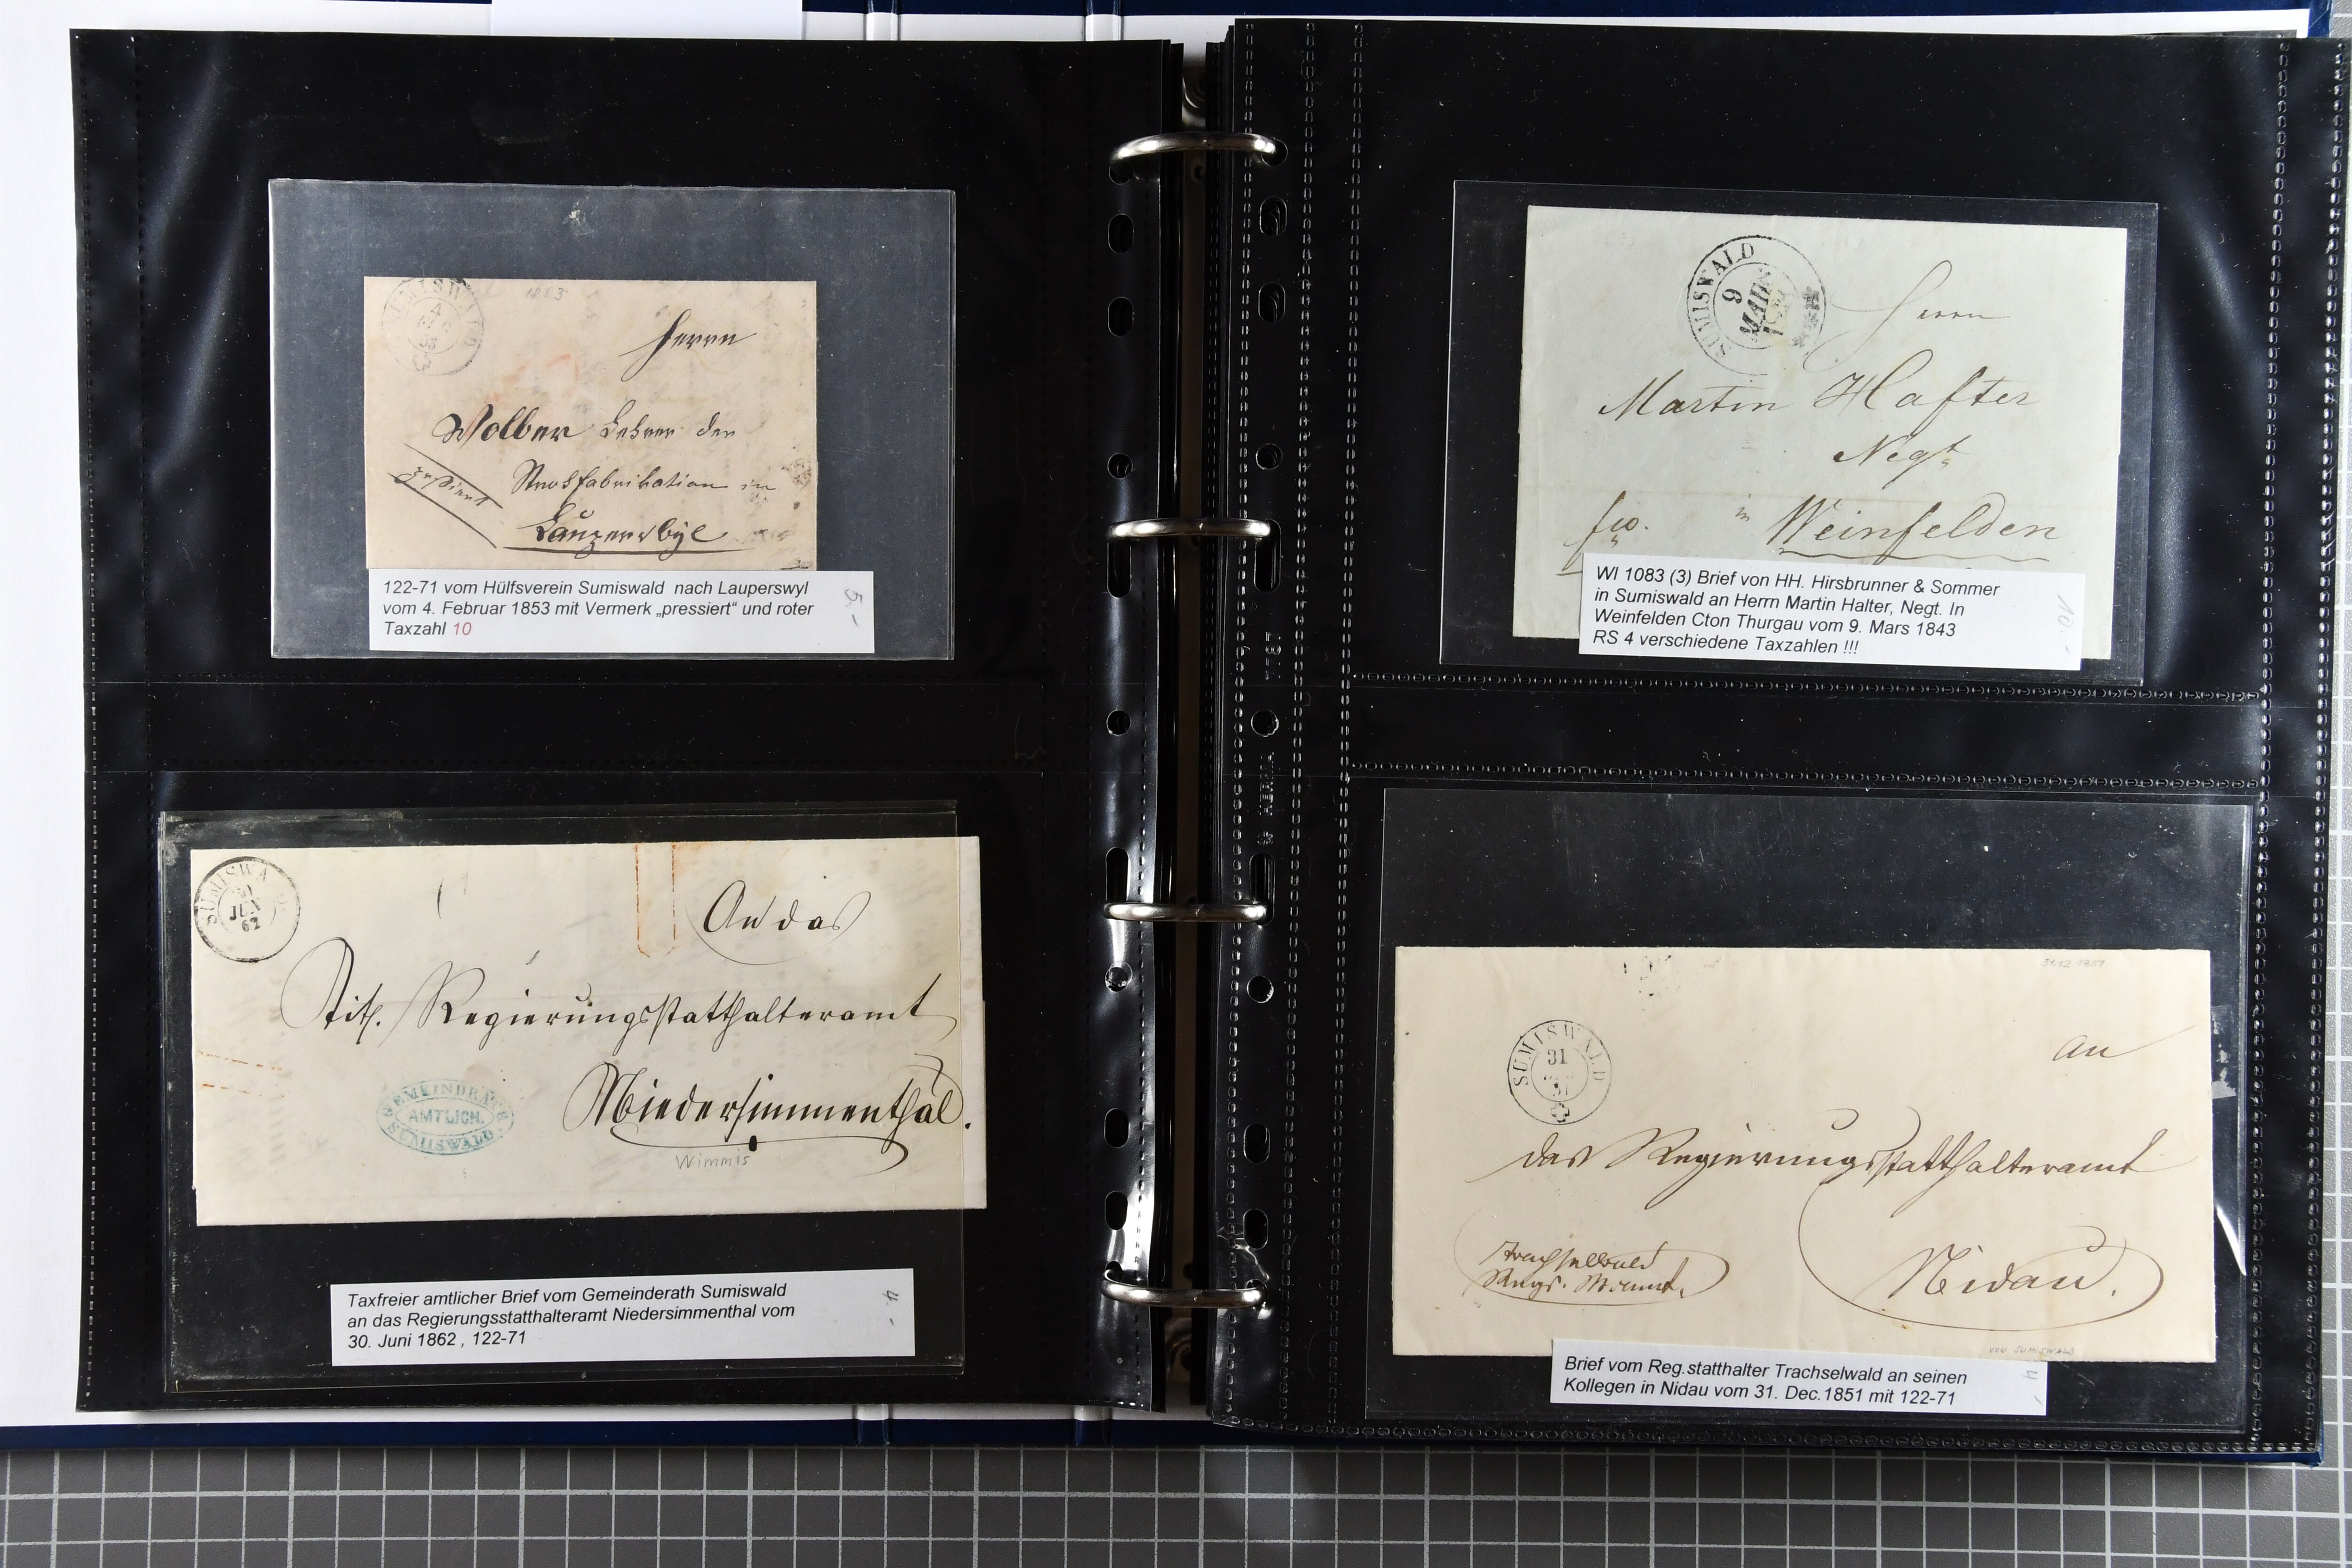 SUMISWALD
4
53
1853
Herrn
Wolber Lehrer der
Strohfabrikation in
pressiert
Lauperswyl
122-71 vom Hülfsverein Sumiswald nach Lauperswyl
vom 4. Februar 1853 mit Vermerk „pressiert“ und roter
Taxzahl 10
5.-
SUMISWALD
30
JUN
62
An das
Tit. Regierungsstatthalteramt
Niedersimmenthal.
GEMEINDRATH
AMTLICH.
SUMISWALD
Wimmis
Taxfreier amtlicher Brief vom Gemeinderath Sumiswald
an das Regierungsstatthalteramt Niedersimmenthal vom
30. Juni 1862 , 122-71
4.-
SUMISWALD
9
MARS
Herrn
Martin Hafter
Negt
fco. in Weinfelden
WI 1083 (3) Brief von HH. Hirsbrunner & Sommer
in Sumiswald an Herrn Martin Halter, Negt. In
Weinfelden Cton Thurgau vom 9. Mars 1843
RS 4 verschiedene Taxzahlen !!!
10.-
7787
HERMA
31.12.1851
SUMISWALD
31
51
An
das Regierungsstatthalteramt
Nidau.
Trachselwald
VON SUMISWALD
Brief vom Reg.statthalter Trachselwald an seinen
Kollegen in Nidau vom 31. Dec.1851 mit 122-71
4